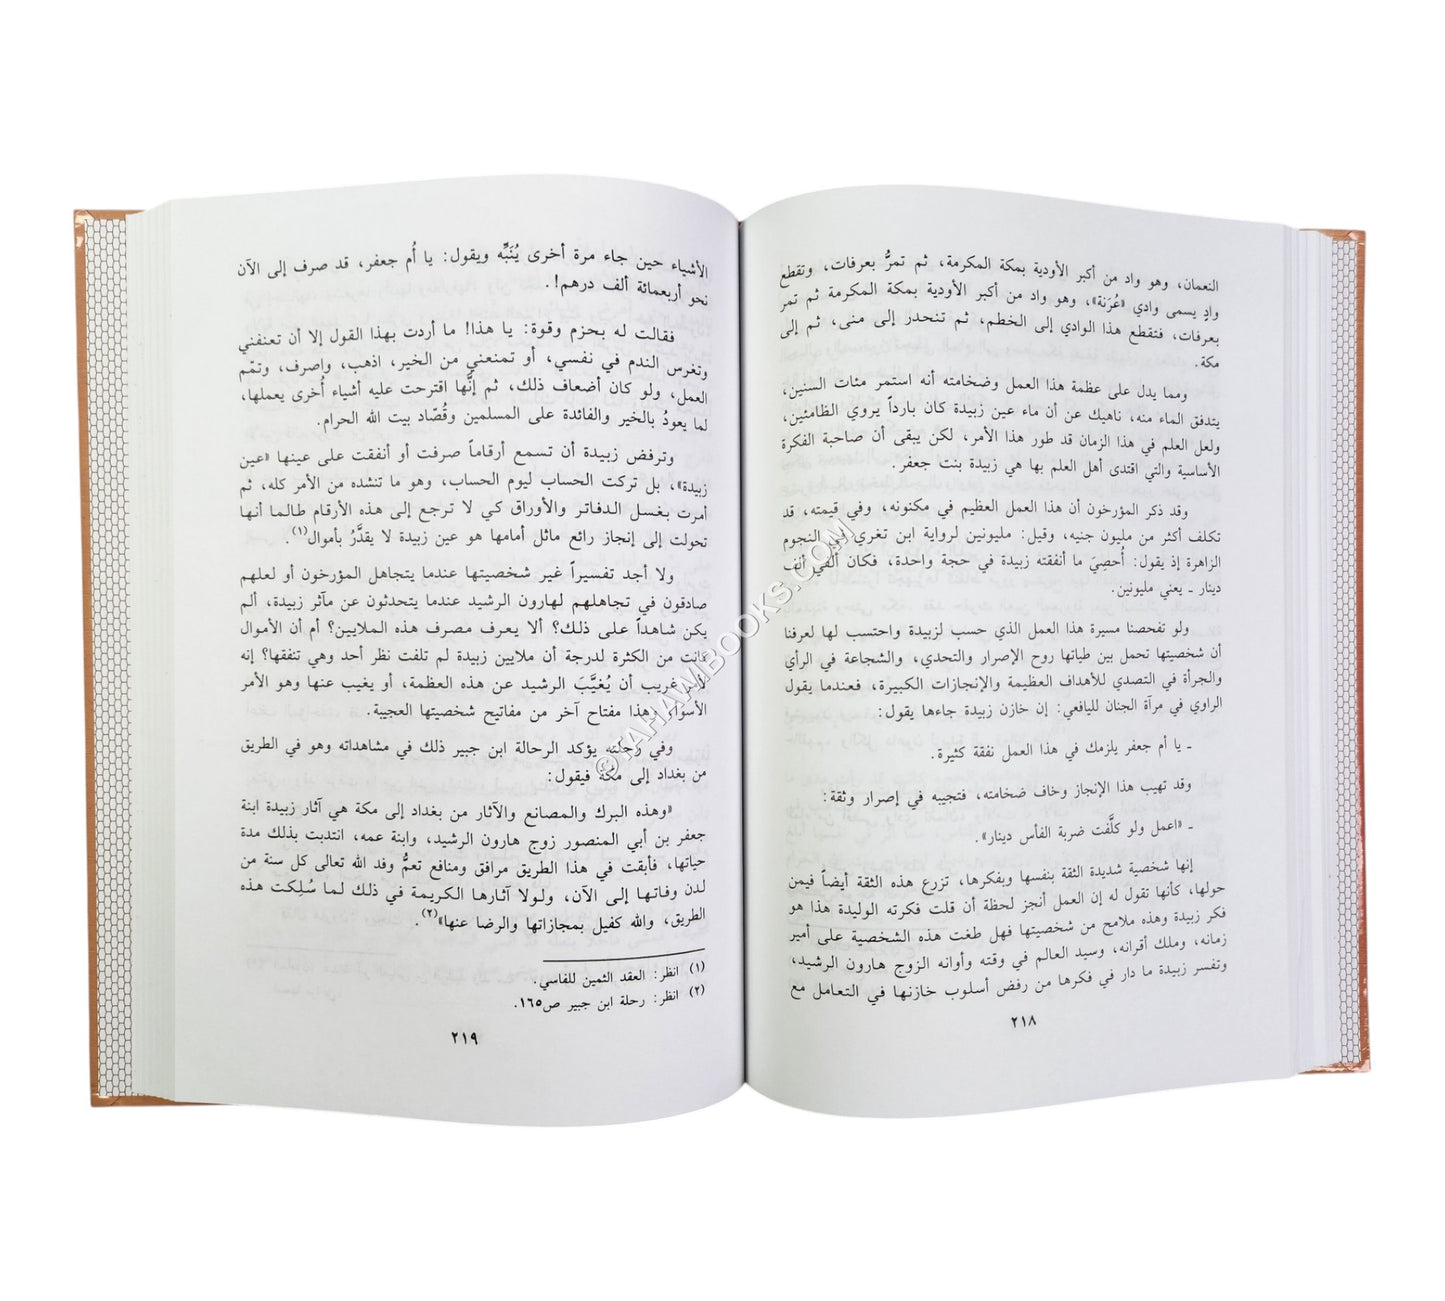 النعمان، وهو واد من أكبر الأودية بمكة المكرمة، ثم تمرُّ بعرفات، وتقطع
وادٍ يسمى وادي «عُرَنة»، وهو واد من أكبر الأودية بمكة المكرمة ثم تمر
بعرفات، فتقطع هذا الوادي إلى الخطم، ثم تنحدر إلى منى، ثم إلى
مكة.
ومما يدل على عظمة هذا العمل وضخامته أنه استمر مئات السنين،
يتدفق الماء منه، ناهيك عن أن ماء عين زبيدة كان بارداً يروي الظامئين،
ولعل العلم في هذا الزمان قد طور هذا الأمر، لكن يبقى أن صاحبة الفكرة
الأساسية والتي اقتدى أهل العلم بها هي زبيدة بنت جعفر.
وقد ذكر المؤرخون أن هذا العمل العظيم في مكنونه، وفي قيمته، قد
تكلف أكثر من مليون جنيه، وقيل: مليونين لرواية ابن تغري في النجوم
الزاهرة إذ يقول: أُحصِيَ ما أنفقته زبيدة في حجة واحدة، فكان ألفي ألف
دينار ـ يعني مليونين.
ولو تفحصنا مسيرة هذا العمل الذي حسب لزبيدة واحتسب لها لعرفنا
أن شخصيتها تحمل بين طياتها روح الإصرار والتحدي، والشجاعة في الرأي
والجرأة في التصدي للأهداف العظيمة والإنجازات الكبيرة، فعندما يقول
الراوي في مرآة الجنان لليافعي: إن خازن زبيدة جاءها يقول:
ـ يا أم جعفر يلزمك في هذا العمل نفقة كثيرة.
وقد تهيب هذا الإنجاز وخاف ضخامته، فتجيبه في إصرار وثقة:
ـ «اعمل ولو كلَّفت ضربة الفأس دينار».
إنها شخصية شديدة الثقة بنفسها وبفكرها، تزرع هذه الثقة أيضاً فيمن
حولها، كأنها تقول له إن العمل أنجز لحظة أن قلت فكرته الوليدة هذا هو
فكر زبيدة وهذه ملامح من شخصيتها فهل طغت هذه الشخصية على أمير
زمانه، وملك أقرانه، وسيد العالم في وقته وأوانه الزوج هارون الرشيد،
وتفسر زبيدة ما دار في فكرها من رفض أسلوب خازنها في التعامل مع
٢١٨
الأشياء حين جاء مرة أخرى يُنَبِّه ويقول: يا أُم جعفر، قد صرف إلى الآن
نحو أربعمائة ألف درهم!.
فقالت له بحزم وقوة: يا هذا! ما أردت بهذا القول إلا أن تعنفني
وتغرس الندم في نفسي، أو تمنعني من الخير، اذهب، واصرف، وتمّم
العمل، ولو كان أضعاف ذلك، ثم إنَّها اقترحت عليه أشياء أُخرى يعملها،
لما يعودُ بالخير والفائدة على المسلمين وقُصّاد بيت الله الحرام.
وترفض زبيدة أن تسمع أرقاماً صرفت أو أنفقت على عينها «عين
زبيدة»، بل تركت الحساب ليوم الحساب، وهو ما تنشده من الأمر كله، ثم
أمرت بغسل الدفاتر والأوراق كي لا ترجع إلى هذه الأرقام طالما أنها
تحولت إلى إنجاز رائع ماثل أمامها هو عين زبيدة لا يقدَّرُ بأموال(١).
ولا أجد تفسيراً غير شخصيتها عندما يتجاهل المؤرخون أو لعلهم
صادقون في تجاهلهم لهارون الرشيد عندما يتحدثون عن مآثر زبيدة، ألم
يكن شاهداً على ذلك؟ ألا يعرف مصرف هذه الملايين؟ أم أن الأموال
كانت من الكثرة لدرجة أن ملايين زبيدة لم تلفت نظر أحد وهي تنفقها؟ إنه
لأمر غريب أن يُغيَّبَ الرشيد عن هذه العظمة، أو يغيب عنها وهو الأمر
الأسوأ، وهذا مفتاح آخر من مفاتيح شخصيتها العجيبة.
وفي رحلته يؤكد الرحالة ابن جبير ذلك في مشاهداته وهو في الطريق
من بغداد إلى مكة فيقول:
«وهذه البرك والمصانع والآثار من بغداد إلى مكة هي آثار زبيدة ابنة
جعفر بن أبي المنصور زوج هارون الرشيد، وابنة عمه، انتدبت بذلك مدة
حياتها، فأبقت في هذا الطريق مرافق ومنافع تعمُّ وفد الله تعالى كل سنة من
لدن وفاتها إلى الآن، ولولا آثارها الكريمة في ذلك لما سُلِكت هذه
الطريق، والله كفيل بمجازاتها والرضا عنها»(٢).
(١) انظر: العقد الثمين للفاسي.
(٢) انظر: رحلة ابن جبير ص١٦٥.
٢١٩
©TAHAWIBOOKS.COM